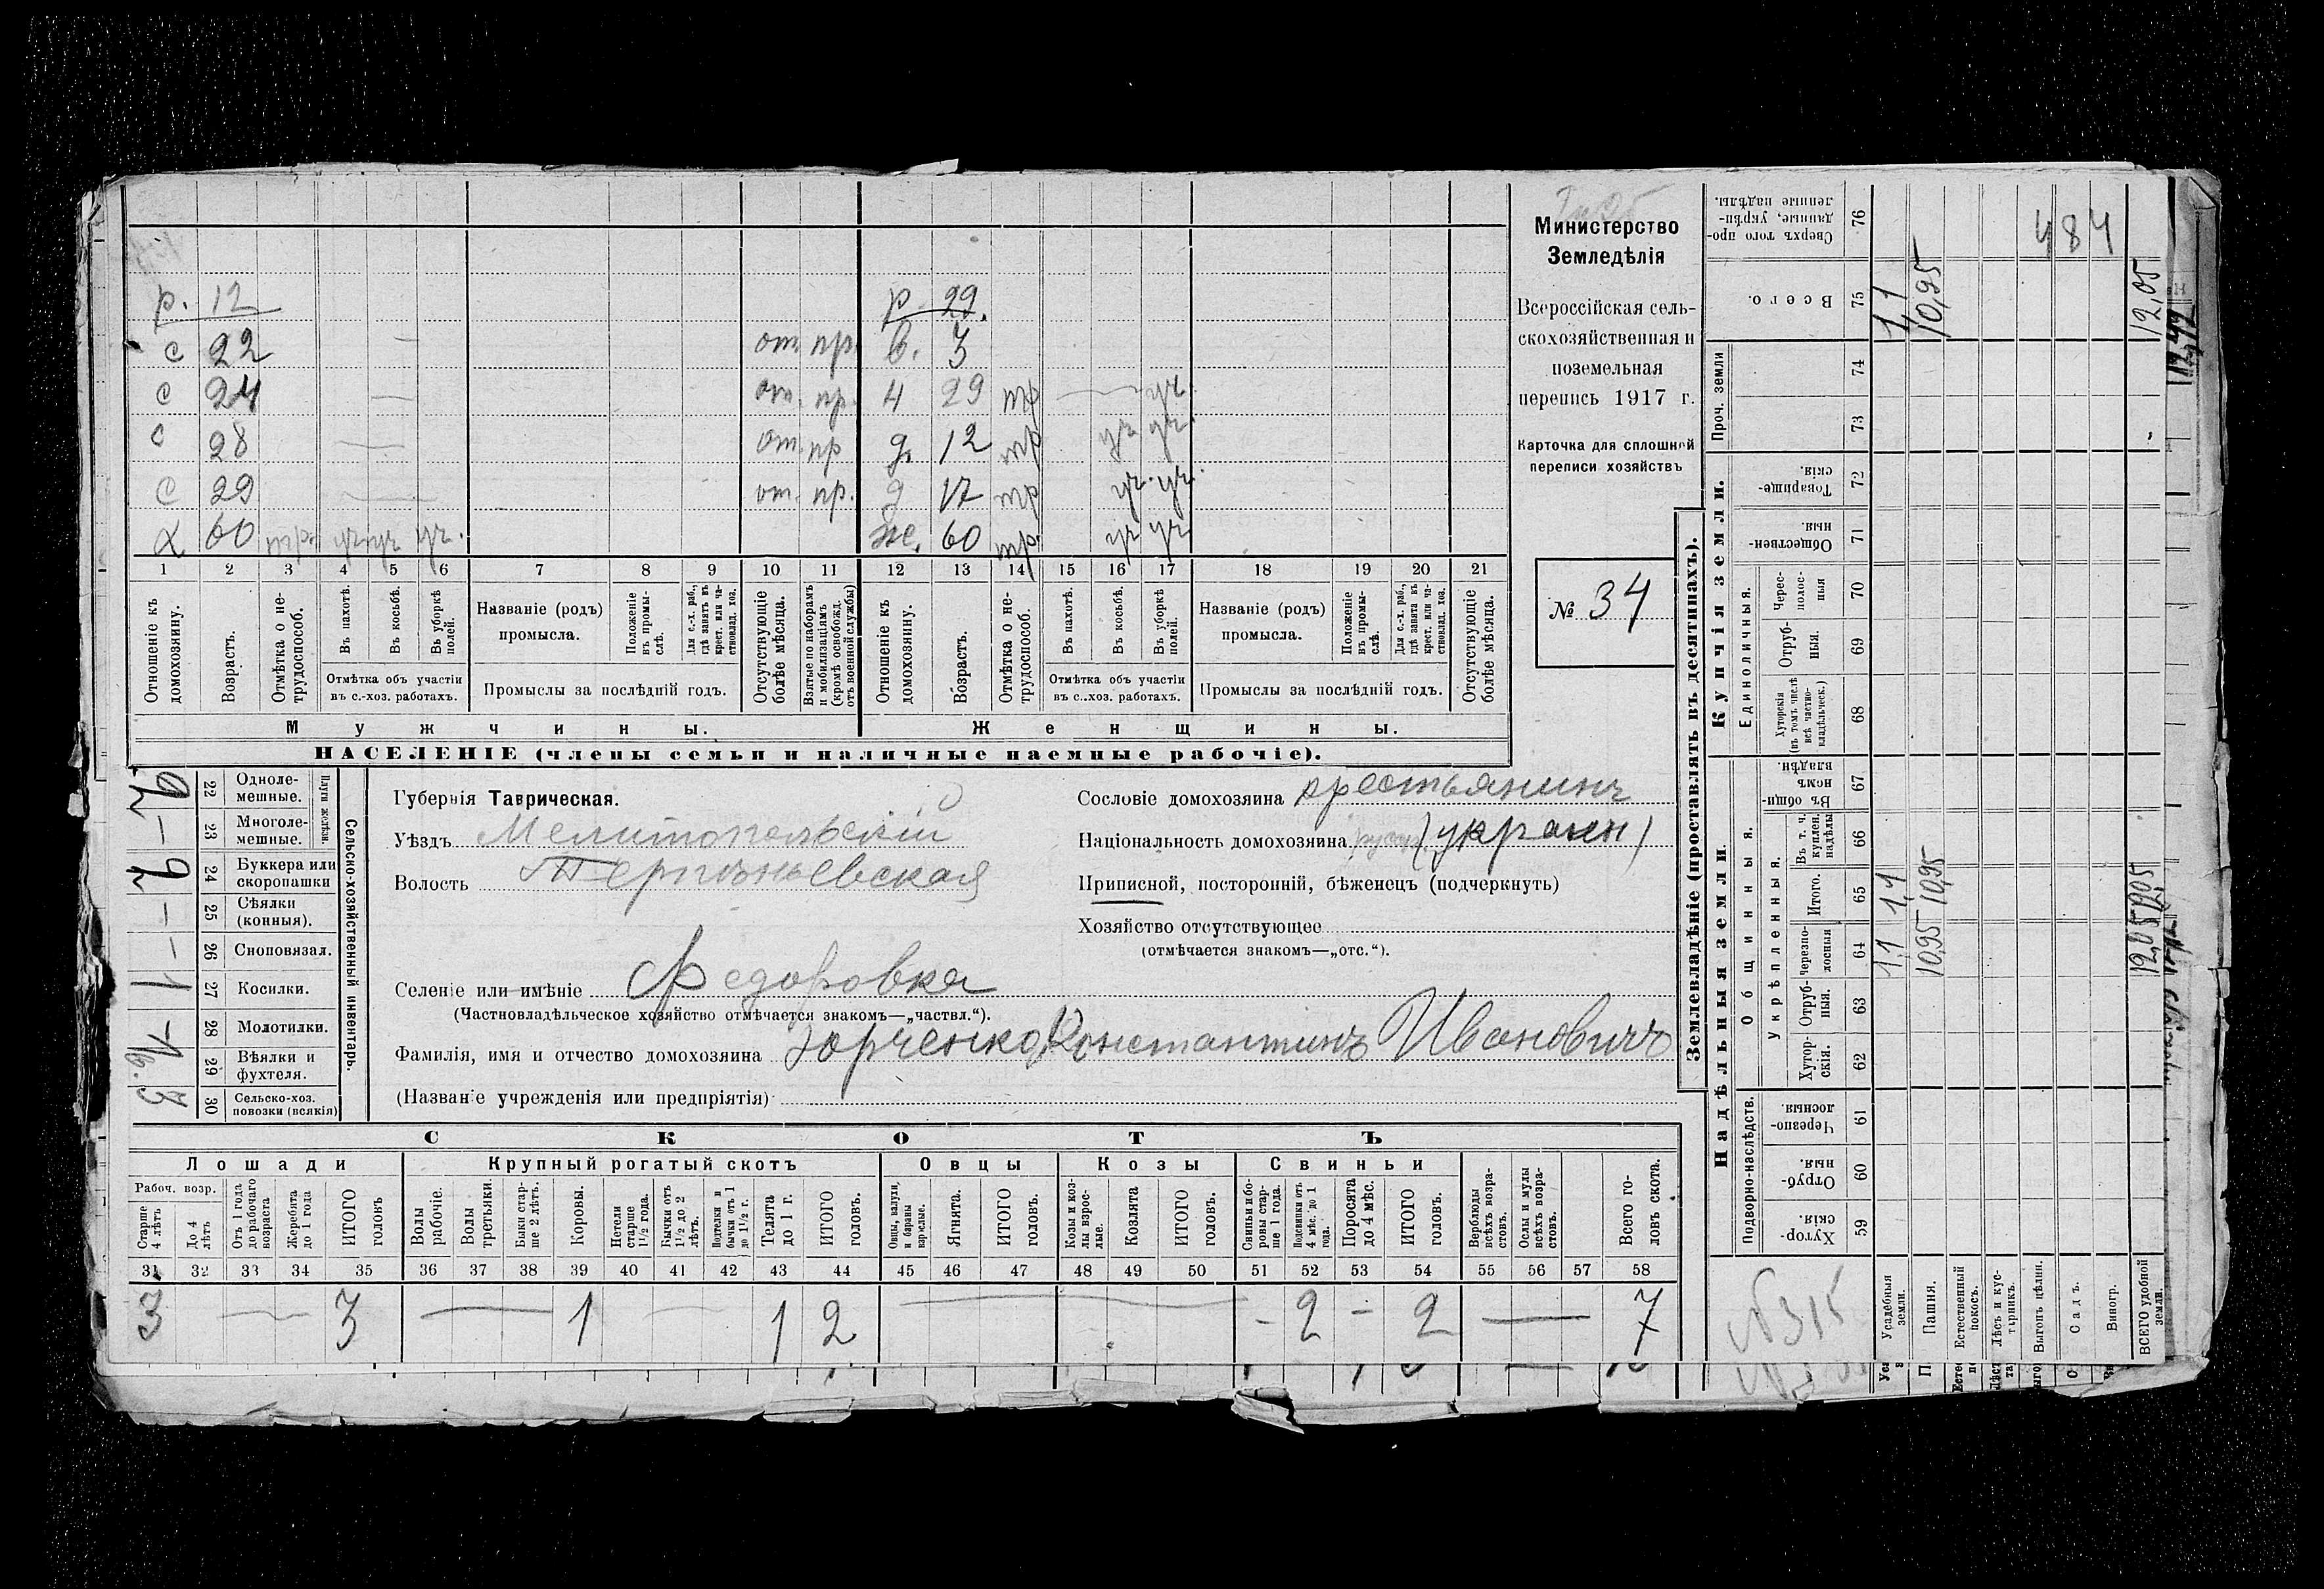 Министерство
Земледѣлія
Всероссійская сель-
скохозяйственная и
поземельная
перепись 1917 г.
Карточка для сплошной
переписи хозяйствъ
№ 34
р. 12
р 29.
с 22 — от. пр. в. 3
с 24 — от. пр. 29 уч.
с 28 — от. пр д. 12 уч уч.
с 29 — от. пр. д 17 уч. уч.
60 уч. уч. уч. же. 60 уч уч
1 2 3 4 5 6 7 8 9 10 11 12 13 14 15 16 17 18 19 20 21
Отношеніе къ домохозяину.
Возрастъ.
Отмѣтка о не-трудоспособ.
Въ пахотѣ.
Въ косьбѣ.
Въ уборкѣ полей.
Отмѣтка объ участіи въ с.-хоз. работахъ.
Названіе (родъ) промысла.
Положеніе въ промы-слѣ.
Для с.-х. раб., гдѣ занятъ въ крест. или ча-стновлад. хоз.
Промыслы за послѣдній годъ.
Отсутствующіе болѣе мѣсяца.
Взятые по наборамъ и мобилизаціямъ (кромѣ освобожд. отъ военной службы)
Отношеніе къ домохозяину.
Возрастъ.
Отмѣтка о не-трудоспособ.
Въ пахотѣ.
Въ косьбѣ.
Въ уборкѣ полей.
Отмѣтка объ участіи въ с.-хоз. работахъ.
Названіе (родъ) промысла.
Положеніе въ промы-слѣ.
Для с.-х. раб., гдѣ занята въ крест. или ча-стновлад. хоз.
Промыслы за послѣдній годъ.
Отсутствующіе болѣе мѣсяца.
Мужчины.
Женщины.
НАСЕЛЕНІЕ (члены семьи и наличные наемные рабочіе).
Сельско-хозяйственный инвентарь.
Плуги желѣзн.
22 Одноле-мешные.
— 23 Многоле-мешные.
24 Буккера или скоропашки
— 25 Сѣялки (конныя).
— 26 Сноповязал.
1 27 Косилки.
— 28 Молотилки.
1 29 Вѣялки и фухтеля.
3 30 Сельско-хоз. повозки (всякія)
Губернія Таврическая.
Уѣздъ Мелитопольскій
Волость
Селеніе или имѣніе Федоровка
(Частновладѣльческое хозяйство отмѣчается знакомъ—„частвл.“).
Фамилія, имя и отчество домохозяина Константинъ Ивановичъ
(Названіе учрежденія или предпріятія)
Сословіе домохозяина крестьянинъ
Національность домохозяина (украин)
Приписной, посторонній, бѣженецъ (подчеркнуть)
Хозяйство отсутствующее
(отмѣчается знакомъ—„отс.“).
СКОТЪ
Лошади Крупный рогатый скотъ Овцы Козы Свиньи
Рабоч. возр.
Старше 4 лѣтъ
До 4 лѣтъ
Отъ 1 года до рабочаго возраста
Жеребята до 1 года
ИТОГО головъ
Волы рабочіе.
Волы третьяки.
Быки стар-ше 2 лѣтъ.
Коровы.
Нетели старше 1½ года.
Бычки отъ 1½ до 2 лѣтъ.
Подтелки и бычки отъ 1 до 1½ г.
Телята до 1 г.
ИТОГО головъ.
Овцы, валухи, и бараны взрослые.
Ягнята.
ИТОГО головъ.
Козы и коз-лы взрос-лые.
Козлята
ИТОГО головъ.
Свиньи и бо-ровы стар-ше 1 года.
Подсвинки отъ 4 мѣс. до 1 года.
Поросята до 4 мѣс.
ИТОГО головъ.
Верблюды всѣхъ возра-стовъ.
Ослы и мулы всѣхъ возра-стовъ.
Всего го-ловъ скота.
31 32 33 34 35 36 37 38 39 40 41 42 43 44 45 46 47 48 49 50 51 52 53 54 55 56 57 58
3 — 3 — 1 — 1 2 — - 2 - 2 — 7
Землевладѣніе (проставлять въ десятинахъ).
Надѣльныя земли.
Купчія земли.
Подворно-наслѣдств.
Общинныя.
Укрѣпленныя.
Единоличныя.
Проч. земли
59 Хутор-скія.
60 Отруб-ныя.
61 Черезпо-лосныя
62 Хутор-скія.
63 Отруб-ныя.
64 Черезпо-лосныя
65 Итого.
66 Въ т. ч. куплен. надѣлы
67 Въ общи-номъ владѣн.
68 Хуторскія (въ томъ числѣ всѣ частно-владѣльческ.)
69 Отруб-ныя.
70 Черес-полос-ныя
71 Обществен-ныя.
72 Товарище-скія.
73
74
75 Всего.
76 Сверхъ того про-данные, укрѣп-ленные надѣлы.
№315
Усадебныя земли. 1,1 1,1 1,1
Пашня. 10,95 10,95 10,95
Естественный покосъ.
Лѣсъ и кус-тарникъ.
Выгонъ цѣлин.
Садъ.
Виногр.
ВСЕГО удобной земли. 12,05 12,05 12,05
484